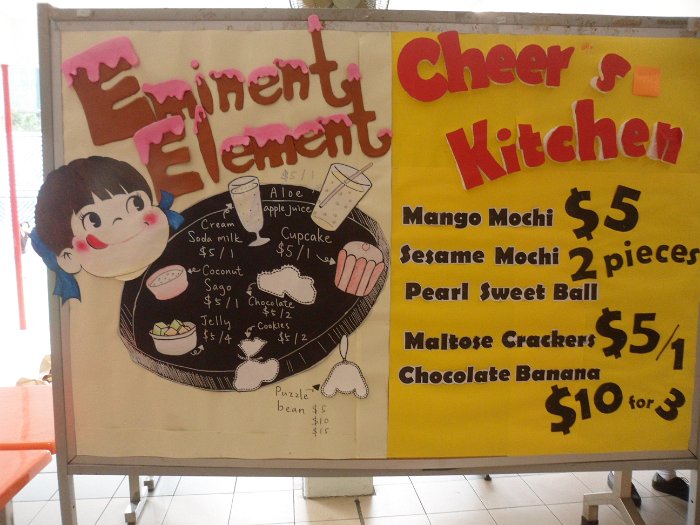 Eminent
Element
$5/1
Aloe
apple juice
Cream
Soda milk
$5/1
Cupcake
$5/1
Coconut
Sago
$5/1
Chocolate
$5/2
Jelly
$5/4
Cookies
$5/2
Puzzle
bean $5
$10
$15
Cheer's
Kitchen
Mango Mochi $5
Sesame Mochi 2 pieces
Pearl Sweet Ball
Maltose Crackers $5/1
Chocolate Banana
$10 for 3